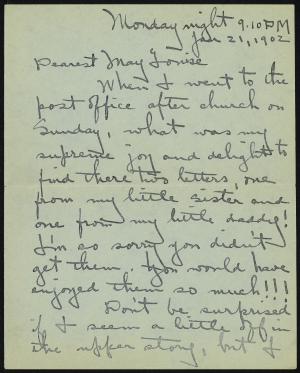 Monday night 9.10 PM
Jan 21, 1902
Dearest May Louise
When I went to the
post office after church on
Sunday, what was my
supreme joy and delight to
find there two letters, one
from my little sister and
one from my little daddy!
I'm so sorry you didn't
get them you would have
enjoyed them so much!!!
Don't be surprised
if I seem a little off in
the upper story, but I